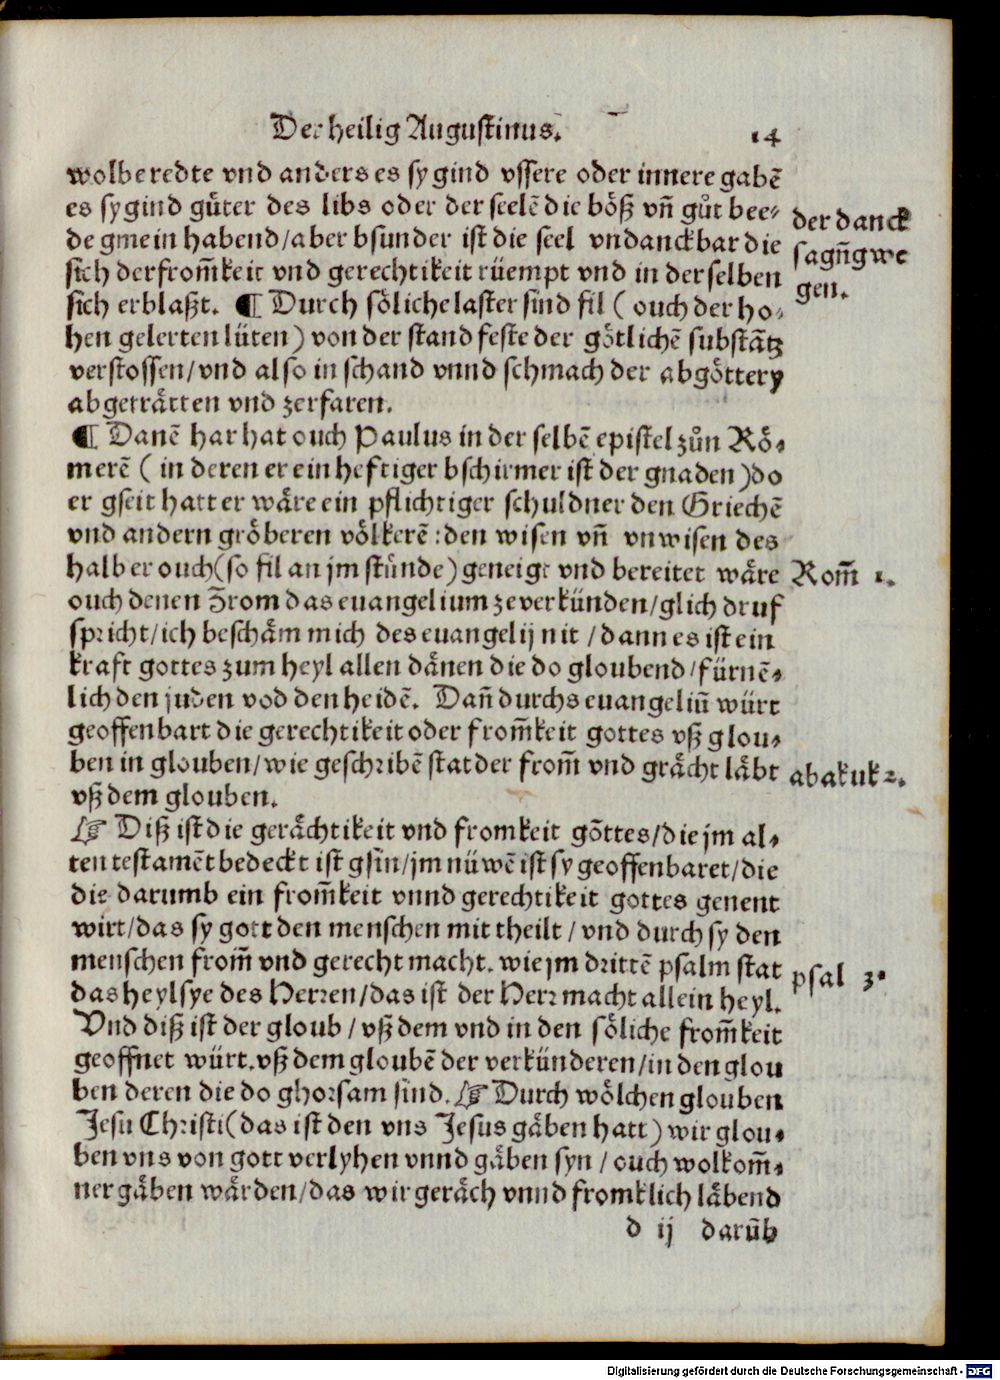 Der heilig Augustinus. 14
wolberedte vnd anders es sygind vssere oder innere gabē
es sygind guͤter des libs oder der seelē die boͤß vn̄ guͦt bee⸗
de gmein habend/aber bsunder ist die seel vndanckbar die
sich der from̄keit vnd gerechtikeit rüempt vnd in derselben
sich erblaßt. ¶ Durch soͤliche laster sind fil ( ouch der ho⸗
hen gelerten lüten) von der stand feste der goͤtlichē substātz
verstossen/vnd also in schand vnnd schmach der abgoͤttery
abgetraͤtten vnd zerfaren.
der danck
sagn̄g we
gen.
¶ Danē har hat ouch Paulus in der selbē epistel zuͦn Roͤ⸗
merē ( in deren er ein heftiger bschirmer ist der gnaden )do
er gseit hatt er waͤre ein pflichtiger schuldner den Griechē
vnd andern groͤberen voͤlkerē :den wisen vn̄ vnwisen des
halb er ouch(so fil an jm stuͤnde)geneigt vnd bereitet waͤre
ouch denen zrom das euangelium ze verkünden/glich druf
spricht/ich beschaͤm mich des euangelij nit /dann es ist ein
kraft gottes zum heyl allen daͤnen die do gloubend/fürnē⸗
lich den juden vod den heidē. Dan̄ durchs euangeliū würt
geoffenbart die gerechtikeit oder from̄keit gottes vß glou⸗
ben in glouben/wie geschribē stat der from̄ vnd graͤcht laͤbt
vß dem glouben.
Rom̄ 1.
abakuk 2.
☞ Diß ist die geraͤchtikeit vnd fromkeit gottes/die jm al⸗
ten testamēt bedeckt ist gsin/jm nüwē ist sy geoffenbaret/die
die darumb ein from̄keit vnnd gerechtikeit gottes genent
wirt/das sy gott den menschen mit theilt / vnd durch sy den
menschen from̄ vnd gerecht macht. wie jm drittē psalm stat
das heyl sye des Herren/das ist der Herr macht allein heyl.
Vnd diß ist der gloub / vß dem vnd in den soͤliche from̄keit
geoffnet würt.vß dem gloubē der verkünderen/in den glou
ben deren die do ghorsam sind. ☞ Durch woͤlchen glouben
Jesu Christi(das ist den vns Jesus gaͤben hatt) wir glou⸗
ben vns von gott verlyhen vnnd gaͤben syn / ouch wolkom̄⸗
ner gaͤben waͤrden/das wir geraͤch vnnd fromklich laͤbend
psal 3.
d ij darūb
Digitalisierung gefördert durch die Deutsche Forschungsgemeinschaft - DFG